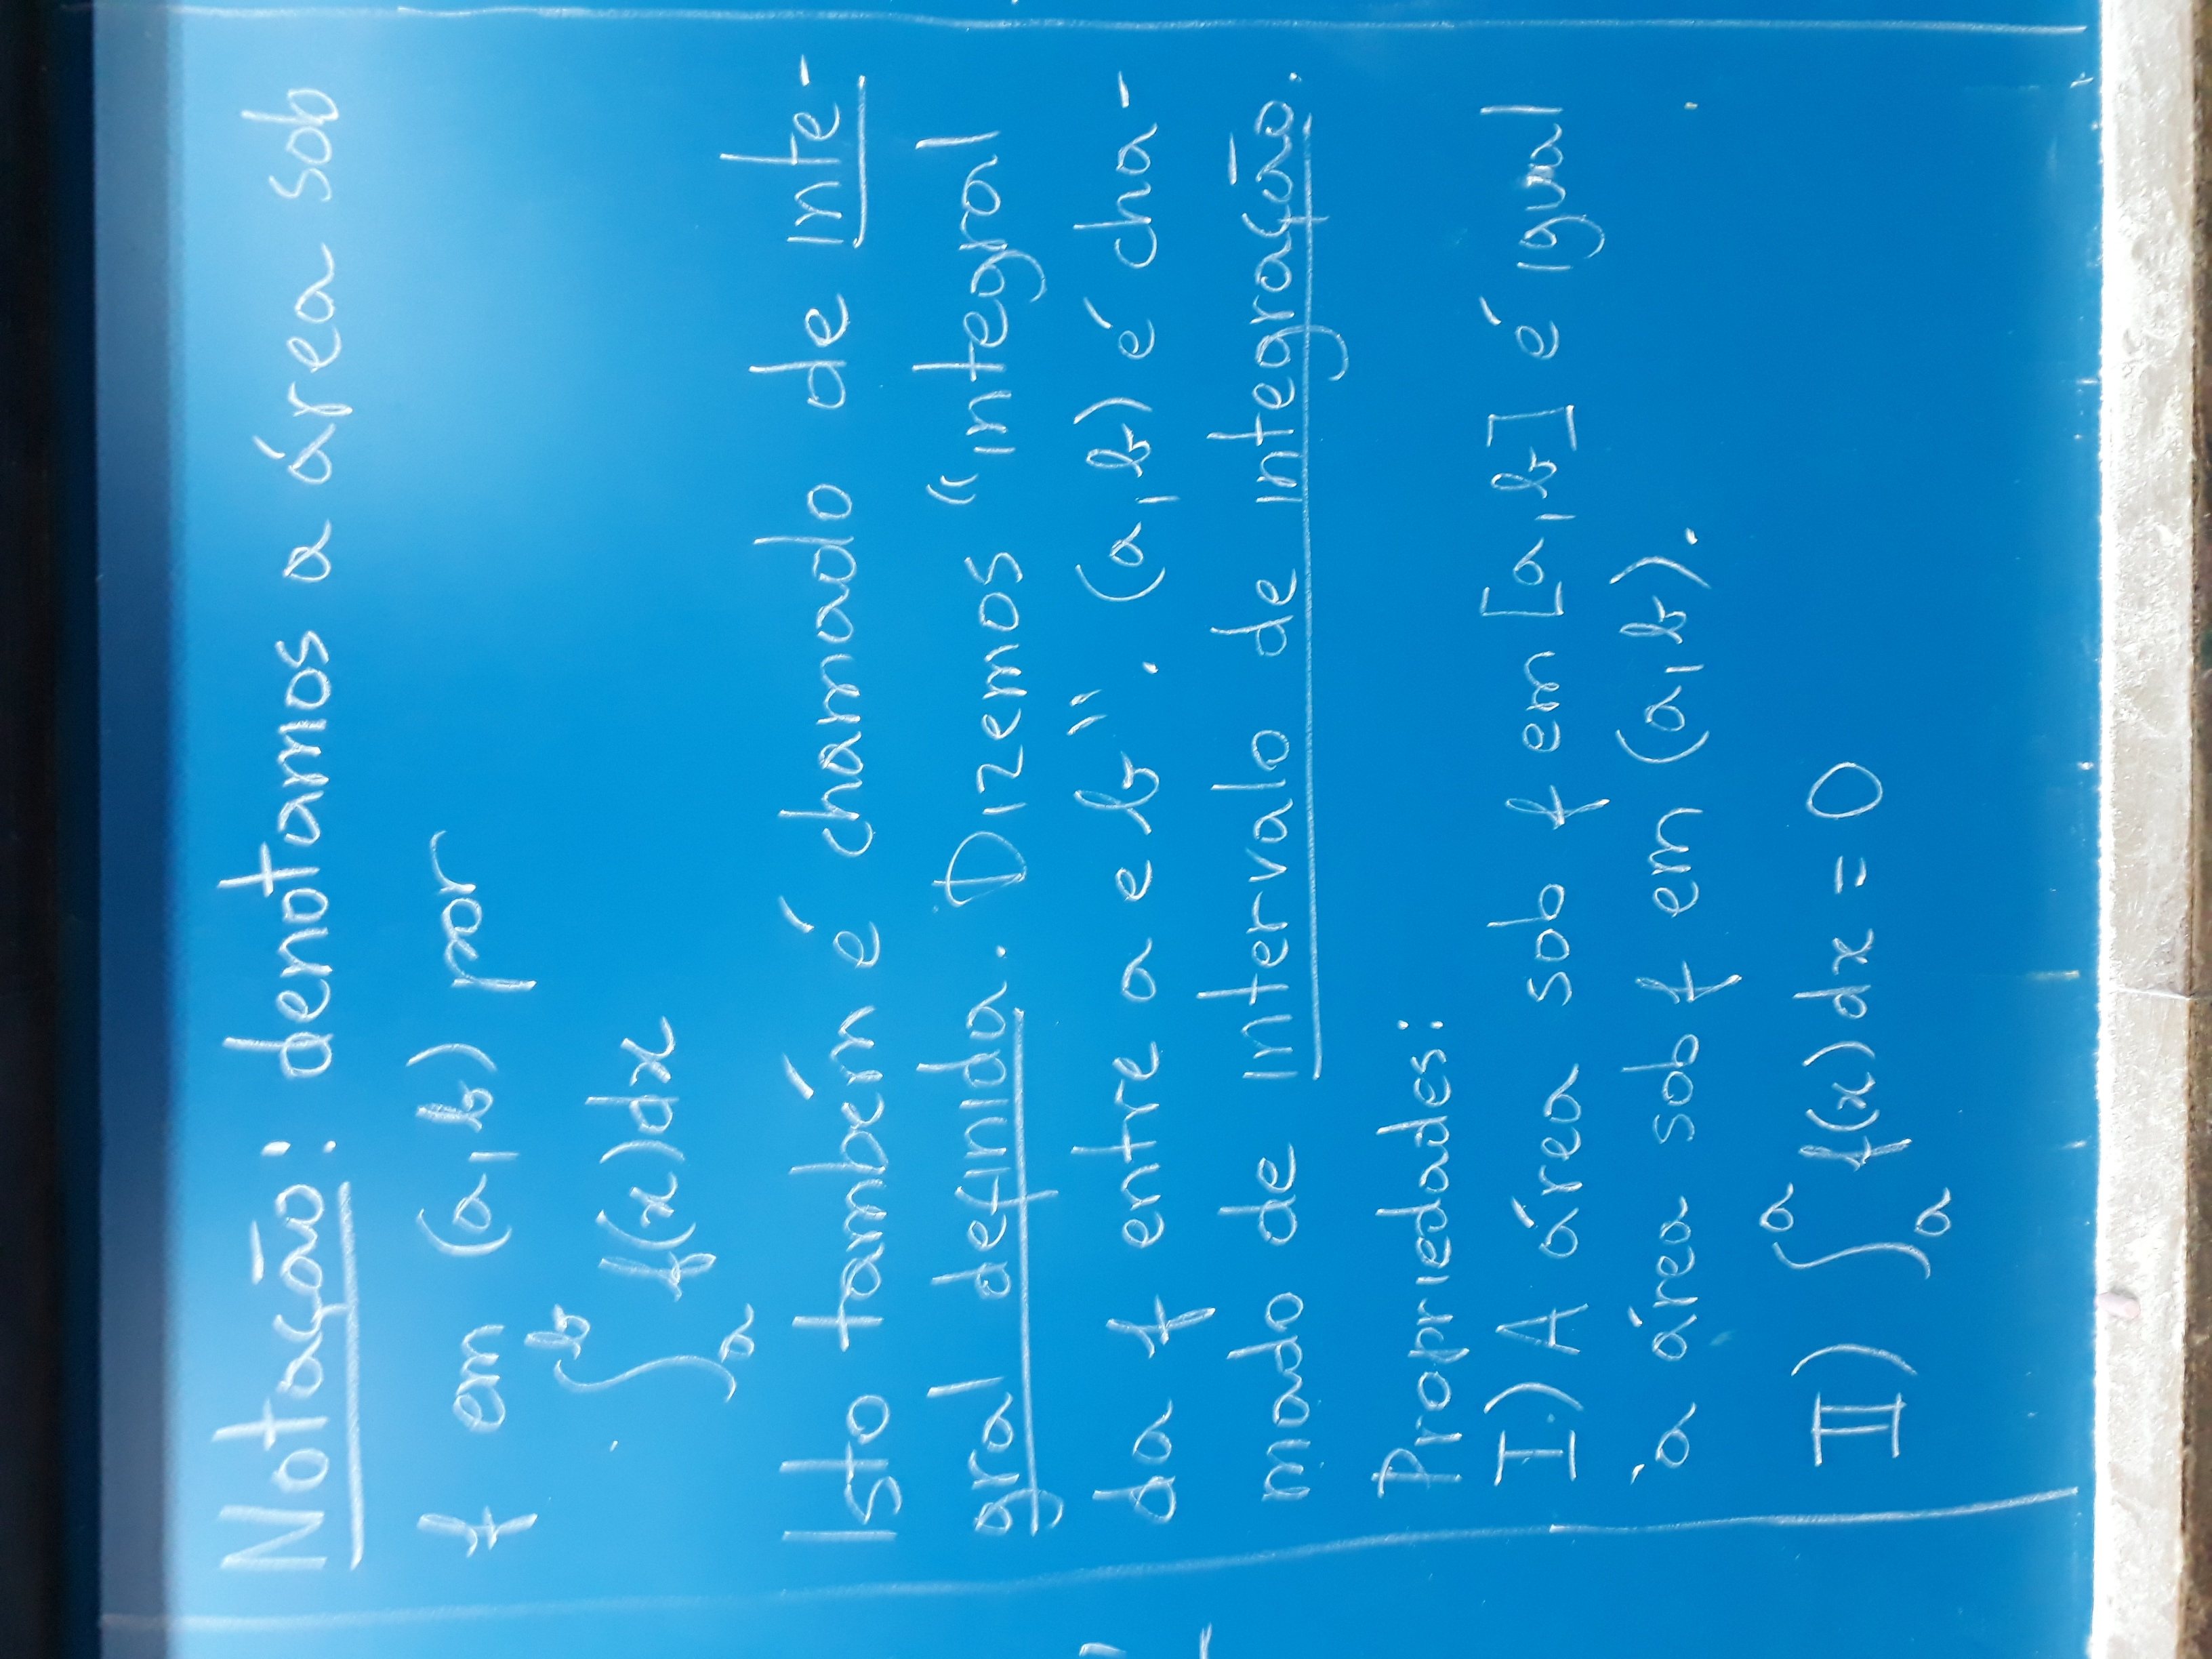 Notação: denotamos a área sob
f em (a,b) por
∫_a^b f(x)dx
Isto também é chamado de inte-
gral definida. Dizemos “integral
da f entre a e b”. (a,b) é cha-
mado de intervalo de integração.
Propriedades:
I.) A área sob f em [a,b] é igual
à área sob f em (a,b).
II) ∫_a^a f(x)dx = 0